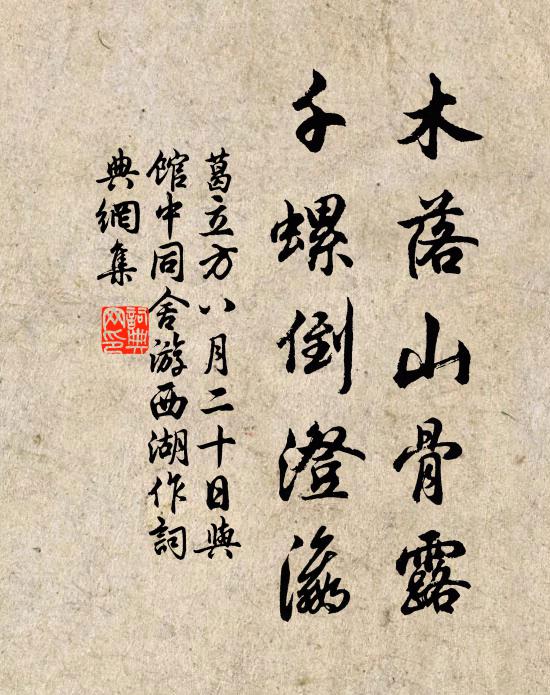 木落山骨露
千螺倒澄瀛
葛立方八月二十日與
館中同舍游西湖作詞
典網集
詞典
网印